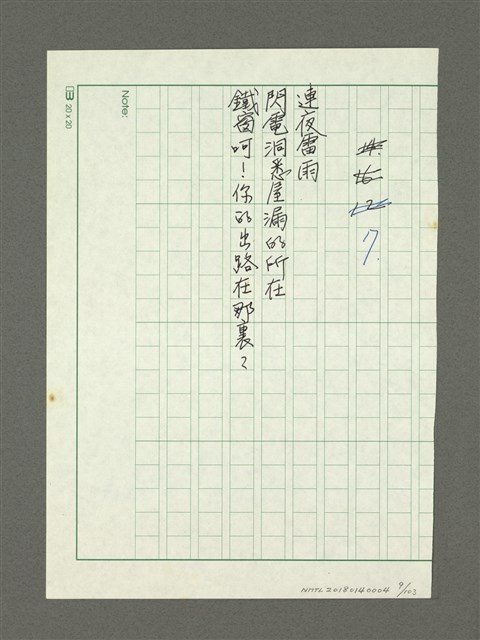 7.
連夜雷雨
閃電洞悉屋漏的所在
鐵窗呵！你的出路在那裏？
Note:
20 x 20
NMTL20180140004 9/103